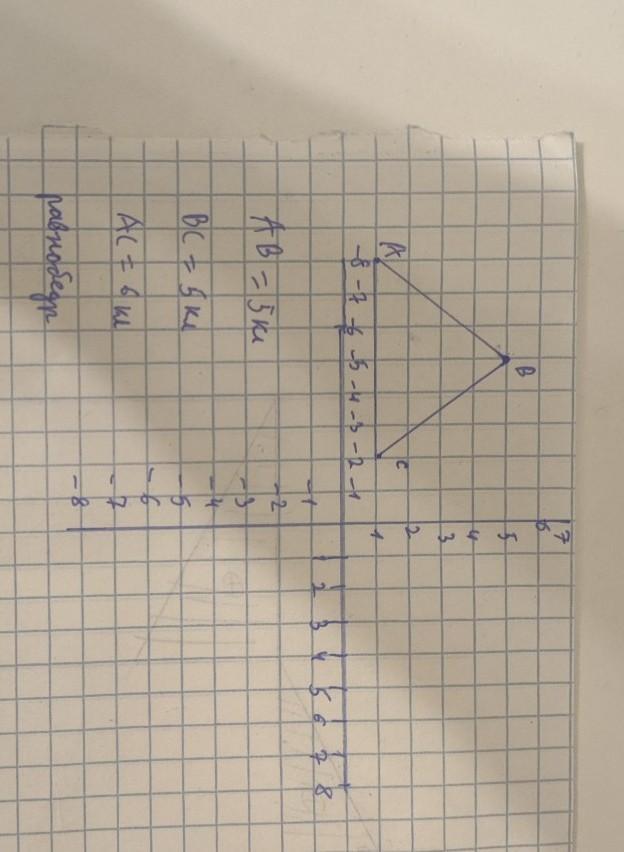 7
6
B
5
4
3
2
A C
1
-8 -7 -6 -5 -4 -3 -2 -1
1 2 3 4 5 6 7 8
-1
-2
-3
-4
-5
-6
-7
-8
AB = 5кл
BC = 5кл
AC = 6кл